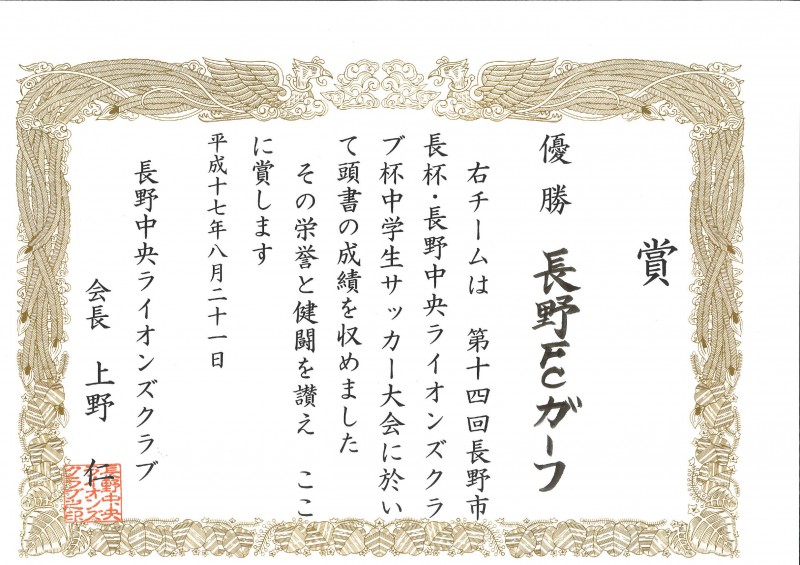 賞
優勝 長野FCガーフ
右チームは 第十四回長野市
長杯・長野中央ライオンズクラ
ブ杯中学生サッカー大会に於い
て頭書の成績を収めました
その栄誉と健闘を讃え ここ
に賞します
平成十七年八月二十一日
長野中央ライオンズクラブ
会長 上野 仁
長野中央
ライオンズ
クラブ之印